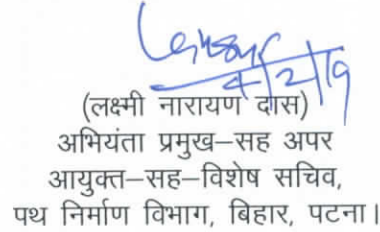 4/2/19
(लक्ष्मी नारायण दास)
अभियंता प्रमुख–सह अपर
आयुक्त–सह–विशेष सचिव,
पथ निर्माण विभाग, बिहार, पटना।